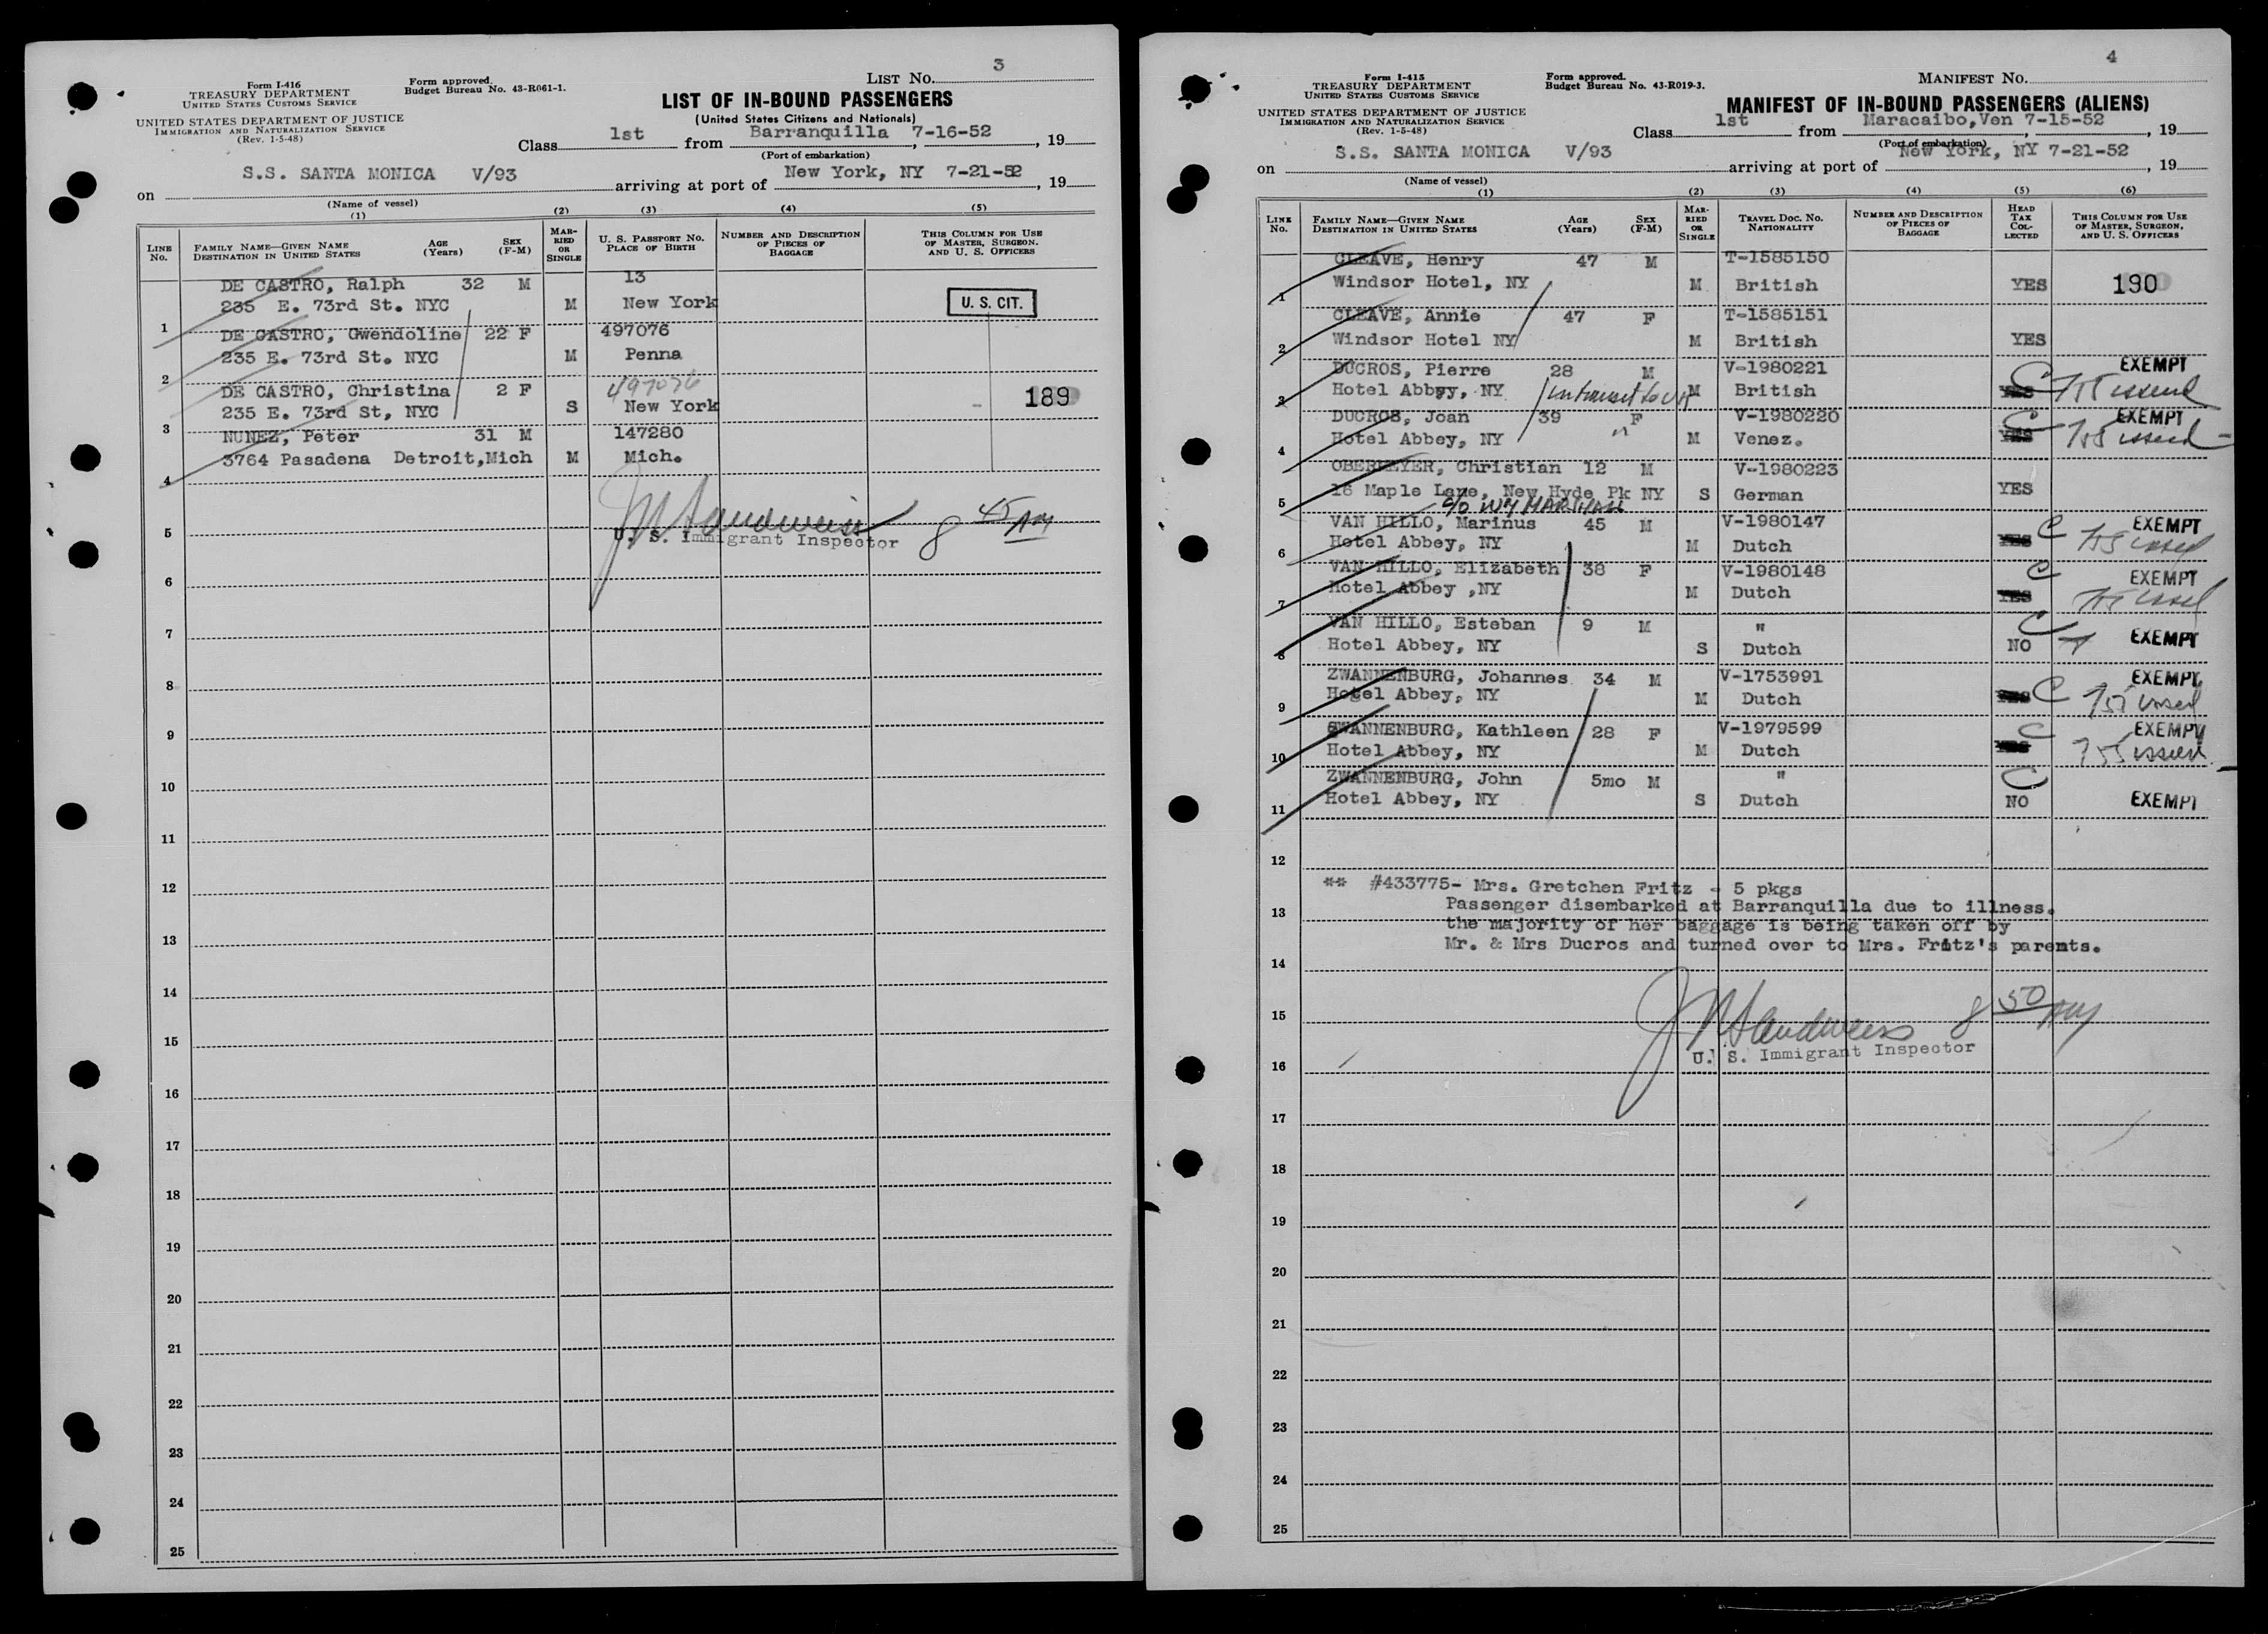 3
Form I-416
TREASURY DEPARTMENT
UNITED STATES CUSTOMS SERVICE
UNITED STATES DEPARTMENT OF JUSTICE
IMMIGRATION AND NATURALIZATION SERVICE
(Rev. 1-5-48)
Form approved.
Budget Bureau No. 43-R061-1.
LIST No.
LIST OF IN-BOUND PASSENGERS
(United States Citizens and Nationals)
Class 1st from Barranquilla 7-16-52, 19
(Port of embarkation)
on S.S. SANTA MONICA V/93 arriving at port of New York, NY 7-21-52, 19
(Name of vessel)
(1) (2) (3) (4) (5)
LINE No. FAMILY NAME—GIVEN NAME DESTINATION IN UNITED STATES AGE (Years) SEX (F-M) MARRIED OR SINGLE U. S. PASSPORT NO. PLACE OF BIRTH NUMBER AND DESCRIPTION OF PIECES OF BAGGAGE THIS COLUMN FOR USE OF MASTER, SURGEON, AND U. S. OFFICERS
DE CASTRO, Ralph 32 M 13
235 E. 73rd St. NYC M New York U. S. CIT.
1
DE CASTRO, Gwendoline 22 F 497076
235 E. 73rd St. NYC M Penna
2
DE CASTRO, Christina 2 F 497076
235 E. 73rd St, NYC S New York 189
3
NUNEZ, Peter 31 M 147280
3764 Pasadena Detroit, Mich M Mich.
4
5
U. S. Immigrant Inspector 8 45 AM
6
7
8
9
10
11
12
13
14
15
16
17
18
19
20
21
22
23
24
25
4
Form I-415
TREASURY DEPARTMENT
UNITED STATES CUSTOMS SERVICE
UNITED STATES DEPARTMENT OF JUSTICE
IMMIGRATION AND NATURALIZATION SERVICE
(Rev. 1-5-48)
Form approved.
Budget Bureau No. 43-R019-3.
MANIFEST No.
MANIFEST OF IN-BOUND PASSENGERS (ALIENS)
Class 1st from Maracaibo, Ven 7-15-52, 19
(Port of embarkation)
on S.S. SANTA MONICA V/93 arriving at port of New York, NY 7-21-52, 19
(Name of vessel)
(1) (2) (3) (4) (5) (6)
LINE No. FAMILY NAME—GIVEN NAME DESTINATION IN UNITED STATES AGE (Years) SEX (F-M) MARRIED OR SINGLE TRAVEL DOC. NO. NATIONALITY NUMBER AND DESCRIPTION OF PIECES OF BAGGAGE HEAD TAX COLLECTED THIS COLUMN FOR USE OF MASTER, SURGEON, AND U. S. OFFICERS
CLEAVE, Henry 47 M T-1585150
Windsor Hotel, NY M British YES 190
1
CLEAVE, Annie 47 F T-1585151
Windsor Hotel NY M British YES
2
DUCROS, Pierre 28 M V-1980221 EXEMPT
Hotel Abbey, NY in transit to M British YES C 755 issued
3
DUCROS, Joan 39 F V-1980220 C EXEMPT
Hotel Abbey, NY " M Venez. YES 755 issued
4
OBERMEYER, Christian 12 M V-1980223
16 Maple Lane, New Hyde Pk NY S German YES
5
c/o WM MARSHALL
VAN HILLO, Marinus 45 M V-1980147 EXEMPT
Hotel Abbey, NY M Dutch YES C 755 issued
6
VAN HILLO, Elizabeth 38 F V-1980148 C EXEMPT
Hotel Abbey ,NY M Dutch YES 755 issued
7
VAN HILLO, Esteban 9 M " C
Hotel Abbey, NY S Dutch NO EXEMPT
8
ZWANNENBURG, Johannes 34 M V-1753991 EXEMPT
Hotel Abbey, NY M Dutch YES C 755 issued
9
SWANNENBURG, Kathleen 28 F V-1979599 C EXEMPT
Hotel Abbey, NY M Dutch YES 755 issued
10
ZWANNENBURG, John 5mo M " C
Hotel Abbey, NY S Dutch NO EXEMPT
11
12
** #433775- Mrs. Gretchen Fritz - 5 pkgs
Passenger disembarked at Barranquilla due to illness.
13
the majority of her baggage is being taken off by
Mr. & Mrs Ducros and turned over to Mrs. Fritz's parents.
14
15
8 50 AM
U. S. Immigrant Inspector
16
17
18
19
20
21
22
23
24
25